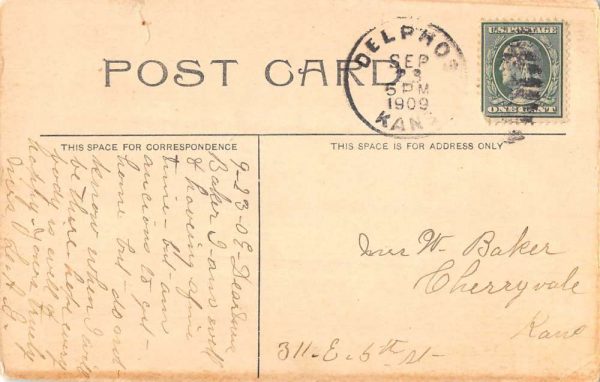 POST CARD
DELPHOS
SEP
23
5 PM
1909
KANS
U.S. POSTAGE
ONE CENT
THIS SPACE FOR CORRESPONDENCE
THIS SPACE IS FOR ADDRESS ONLY
9-23-08-Dear Mrs
Baker I am well
& having a fine
time - but am
ancious to get
home but - do not -
know when I will
be there hope every
body is well &
happy yours truly
Mrs
Mrs W. Baker
Cherryvale
Kans
311-E-5th St-